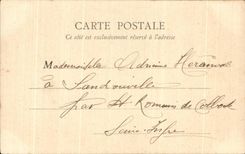 CARTE POSTALE
Ce côté est exclusivement réservé à l'adresse
Mademoiselle Adrienne
à Sandouville
par St Romain de Colbosc
Seine-Infre